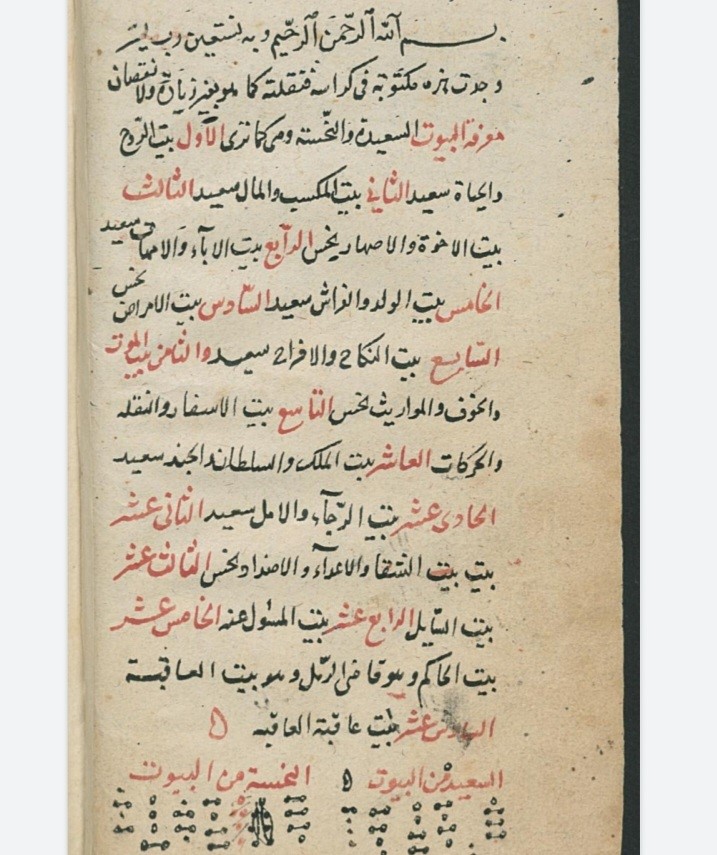 بسم الله الرحمن الرحيم وبه نستعين رب يسر
وجدت هذه مكتوبة فى كراسه فنقلته كما هو بغير زيادة ولا نقصان
معرفة البيوت السعيدة والنحسته وهى كما ترى الأول بيت الروح
والحياة سعيد الثانى بيت المكسب والمال سعيد الثالث
بيت الاخوة والاصهار نحس الرابع بيت الاباء والامهات سعيد
الخامس بيت الولد والفراش سعيد السادس بيت الامراض نحس
السابع بيت النكاح والافراح سعيد والثامن بيت الموت
والخوف والمواريث نحس التاسع بيت الاسفار والنقله
والحركات العاشر بيت الملك والسلطان الجند سعيد
الحادى عشر بيت الرجآء والامل سعيد الثانى عشر
بيت بيت الشقا والاعدآء والاضداد نحس الثالث عشر
بيت السايل الرابع عشر بيت المسئول عنه الخامس عشر
بيت الحاكم وهو قاضى الرمل وهو بيت العاقبسة
السادس عشر بيت عاقبة العاقبه
السعيد من البيوت النحسة من البيوت